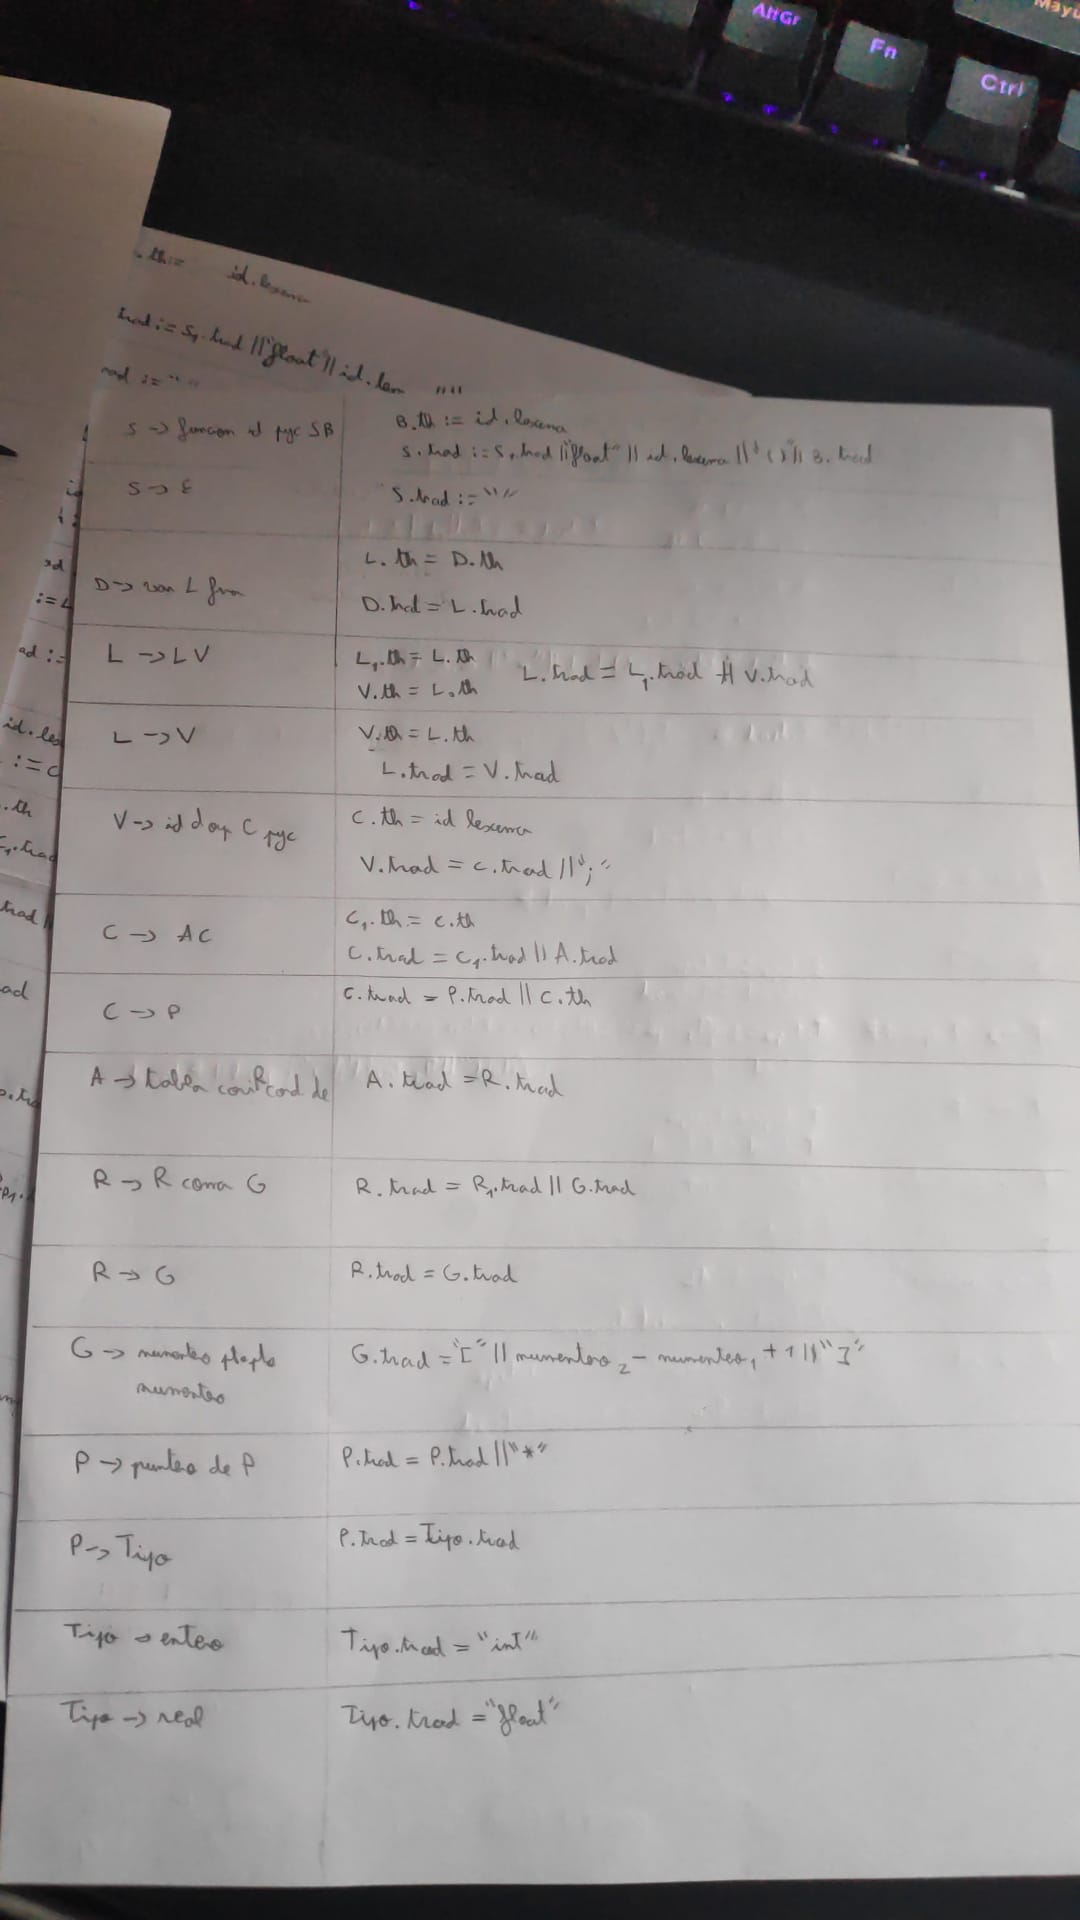 AltGr
Fn
Ctrl
Mayú
.th:=
id.lexema
trad:= S1.trad || "float" || id.lex
""
rad := ""
S -> funcion id pyc S B
B.th := id.lexema
S.trad := S1.trad || "float" || id.lexema || "()" || B.trad
S -> ε
S.trad := ""
D -> var L fvar
L.th = D.th
D.trad = L.trad
L -> L V
L1.th = L.th
V.th = L.th
L.trad = L1.trad || V.trad
L -> V
V.th = L.th
L.trad = V.trad
V -> id dosp C pyc
C.th = id lexema
V.trad = C.trad || ";"
C -> A C
C1.th = C.th
C.trad = C1.trad || A.trad
C -> P
C.trad = P.trad || C.th
A -> tabla cori R cord de
A.trad = R.trad
R -> R coma G
R.trad = R1.trad || G.trad
R -> G
R.trad = G.trad
G -> numentero ptopto
numentero
G.trad = "[" || numentero2 - numentero1 + 1 || "]"
P -> puntero de P
P.trad = P.trad || "*"
P -> Tipo
P.trad = Tipo.trad
Tipo -> entero
Tipo.trad = "int"
Tipo -> real
Tipo.trad = "float"